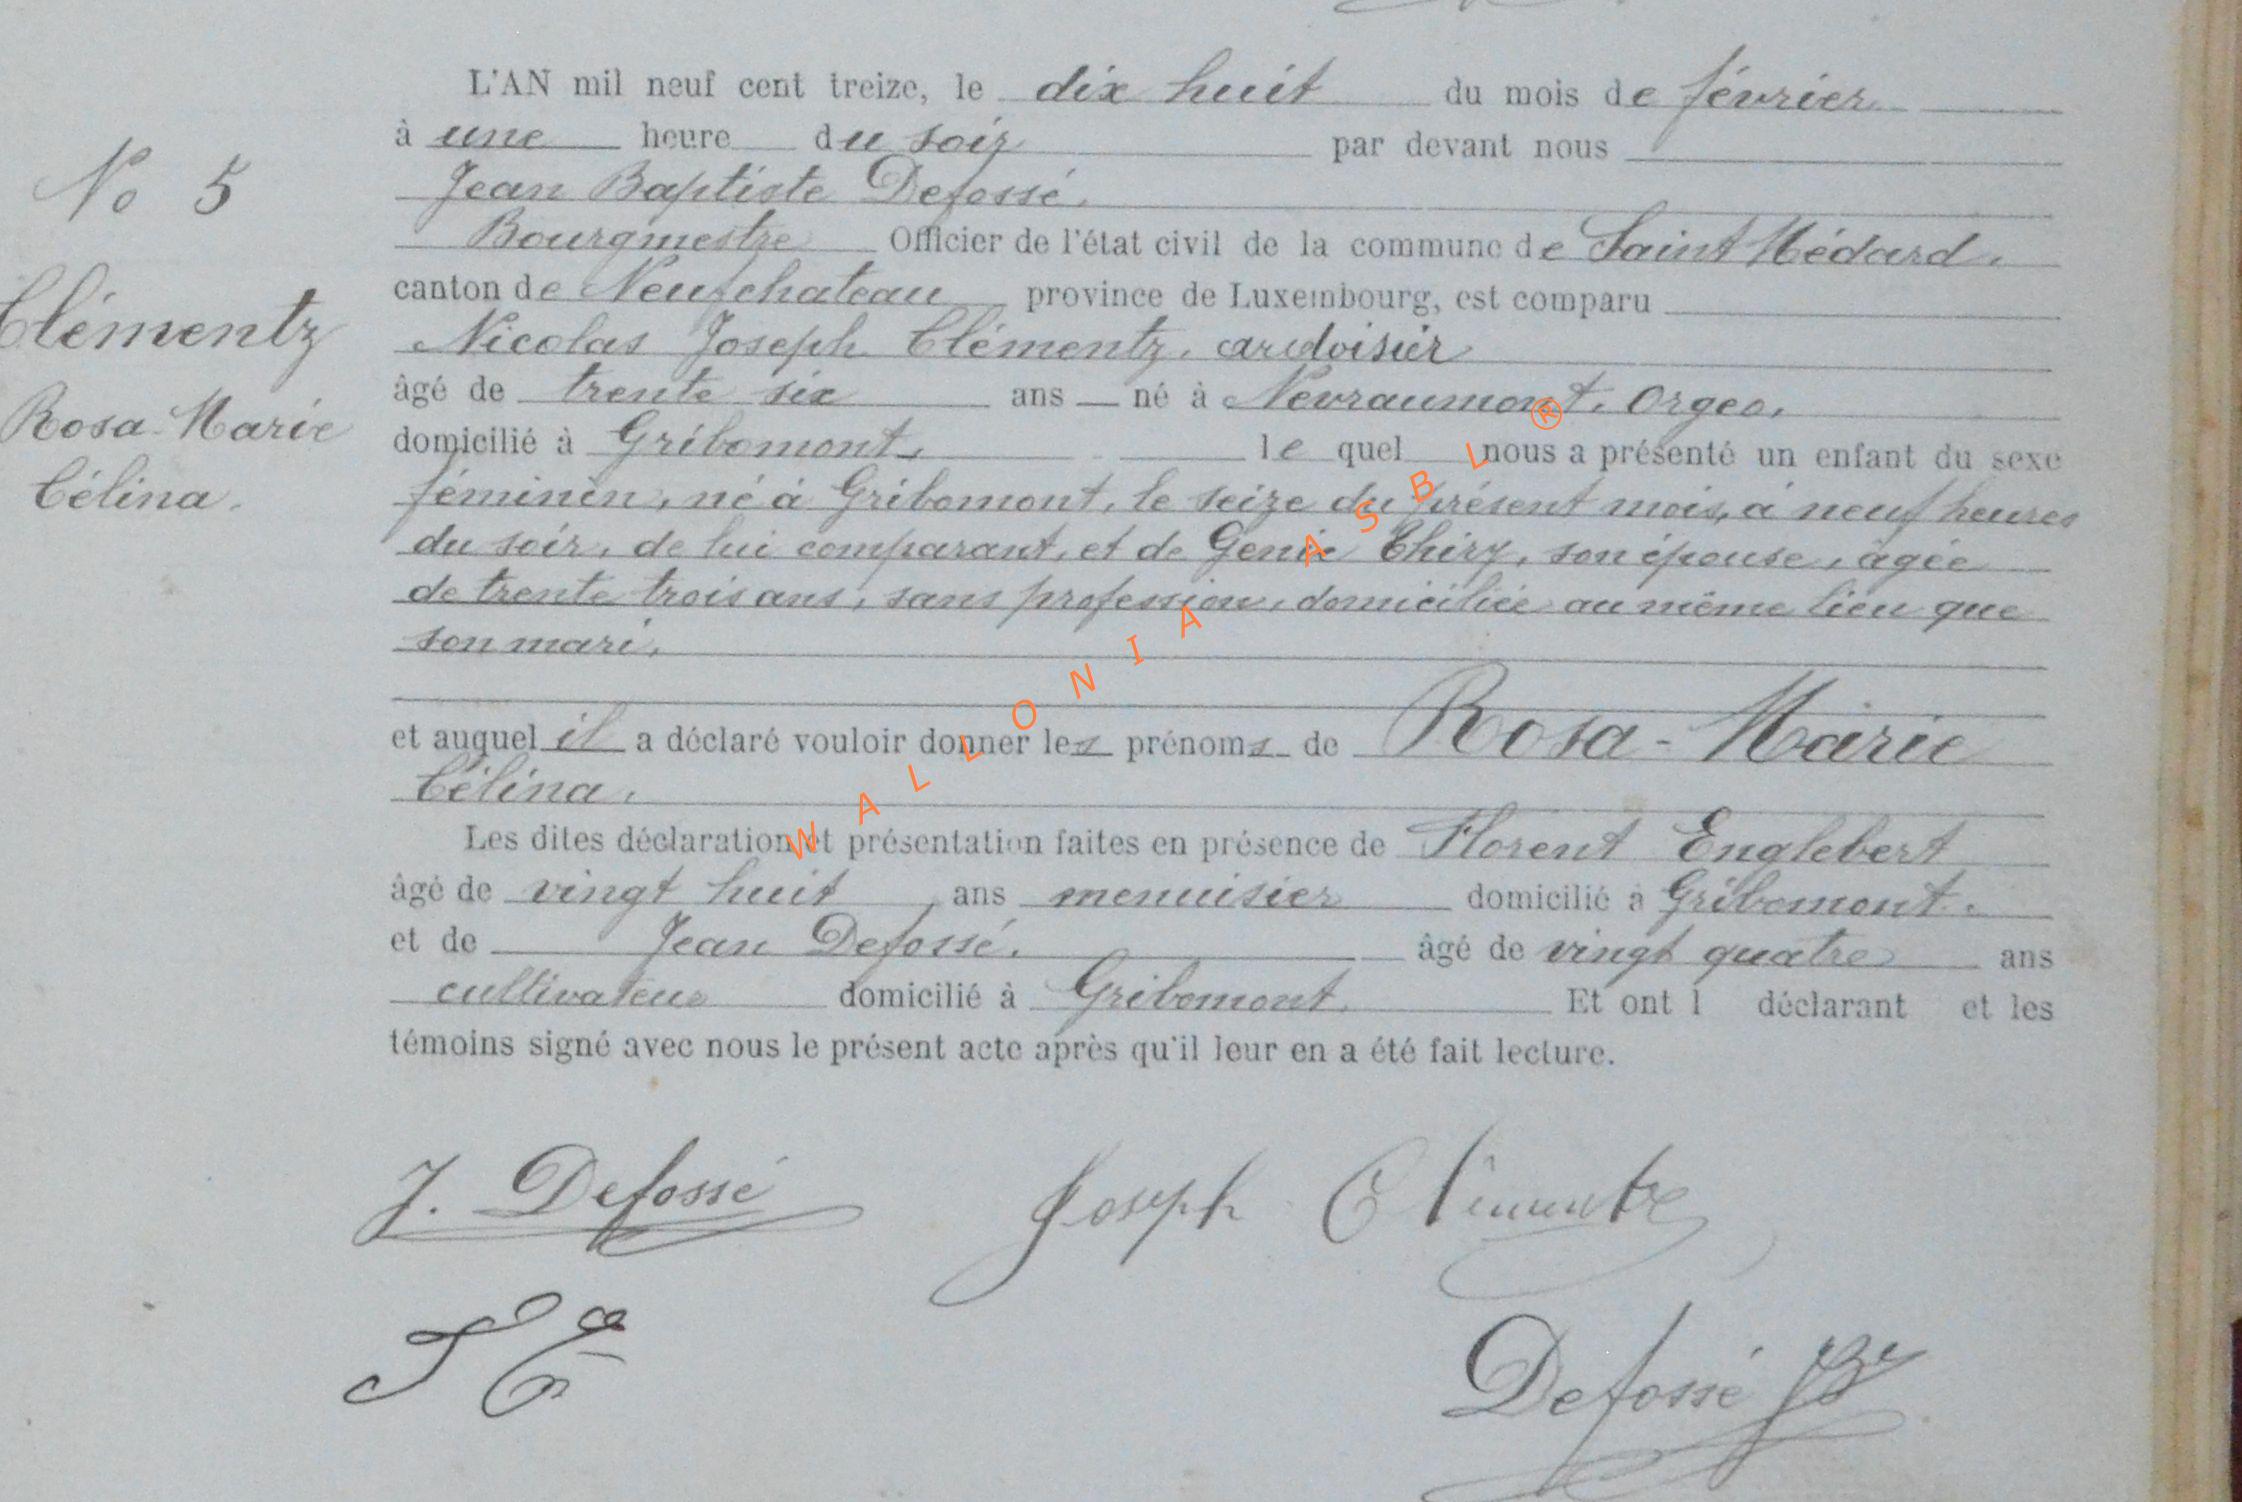 L'AN mil neuf cent treize, le dix huit du mois de février
à une heure du soir par devant nous
Jean Baptiste Defossé.
Bourgmestre Officier de l'état civil de la commune de Saint Médard.
canton de Neufchateau province de Luxembourg, est comparu
Nicolas Joseph Clémentz, ardoisier
âgé de trente six ans né à Nevraumont. Orgeo.
domicilié à Gribomont. le quel nous a présenté un enfant du sexe
féminin, né à Gribomont, le seize du présent mois, à neuf heures
du soir, de lui comparant, et de Genie Thiry, son épouse, agée
de trente trois ans, sans profession, domiciliée au même lieu que
son mari.
et auquel il a déclaré vouloir donner les prénoms de Rosa-Marie
Célina.
Les dites déclaration et présentation faites en présence de Florent Englebert
âgé de vingt huit ans menuisier domicilié à Gribomont.
et de Jean Defossé. âgé de vingt quatre ans
cultivateur domicilié à Gribomont. Et ont l déclarant et les
témoins signé avec nous le présent acte après qu'il leur en a été fait lecture.
No 5
Clémentz
Rosa-Marie
Célina.
J. Defossé
Joseph Clémentz
Defossé JB
WALLONIA ASBL ®